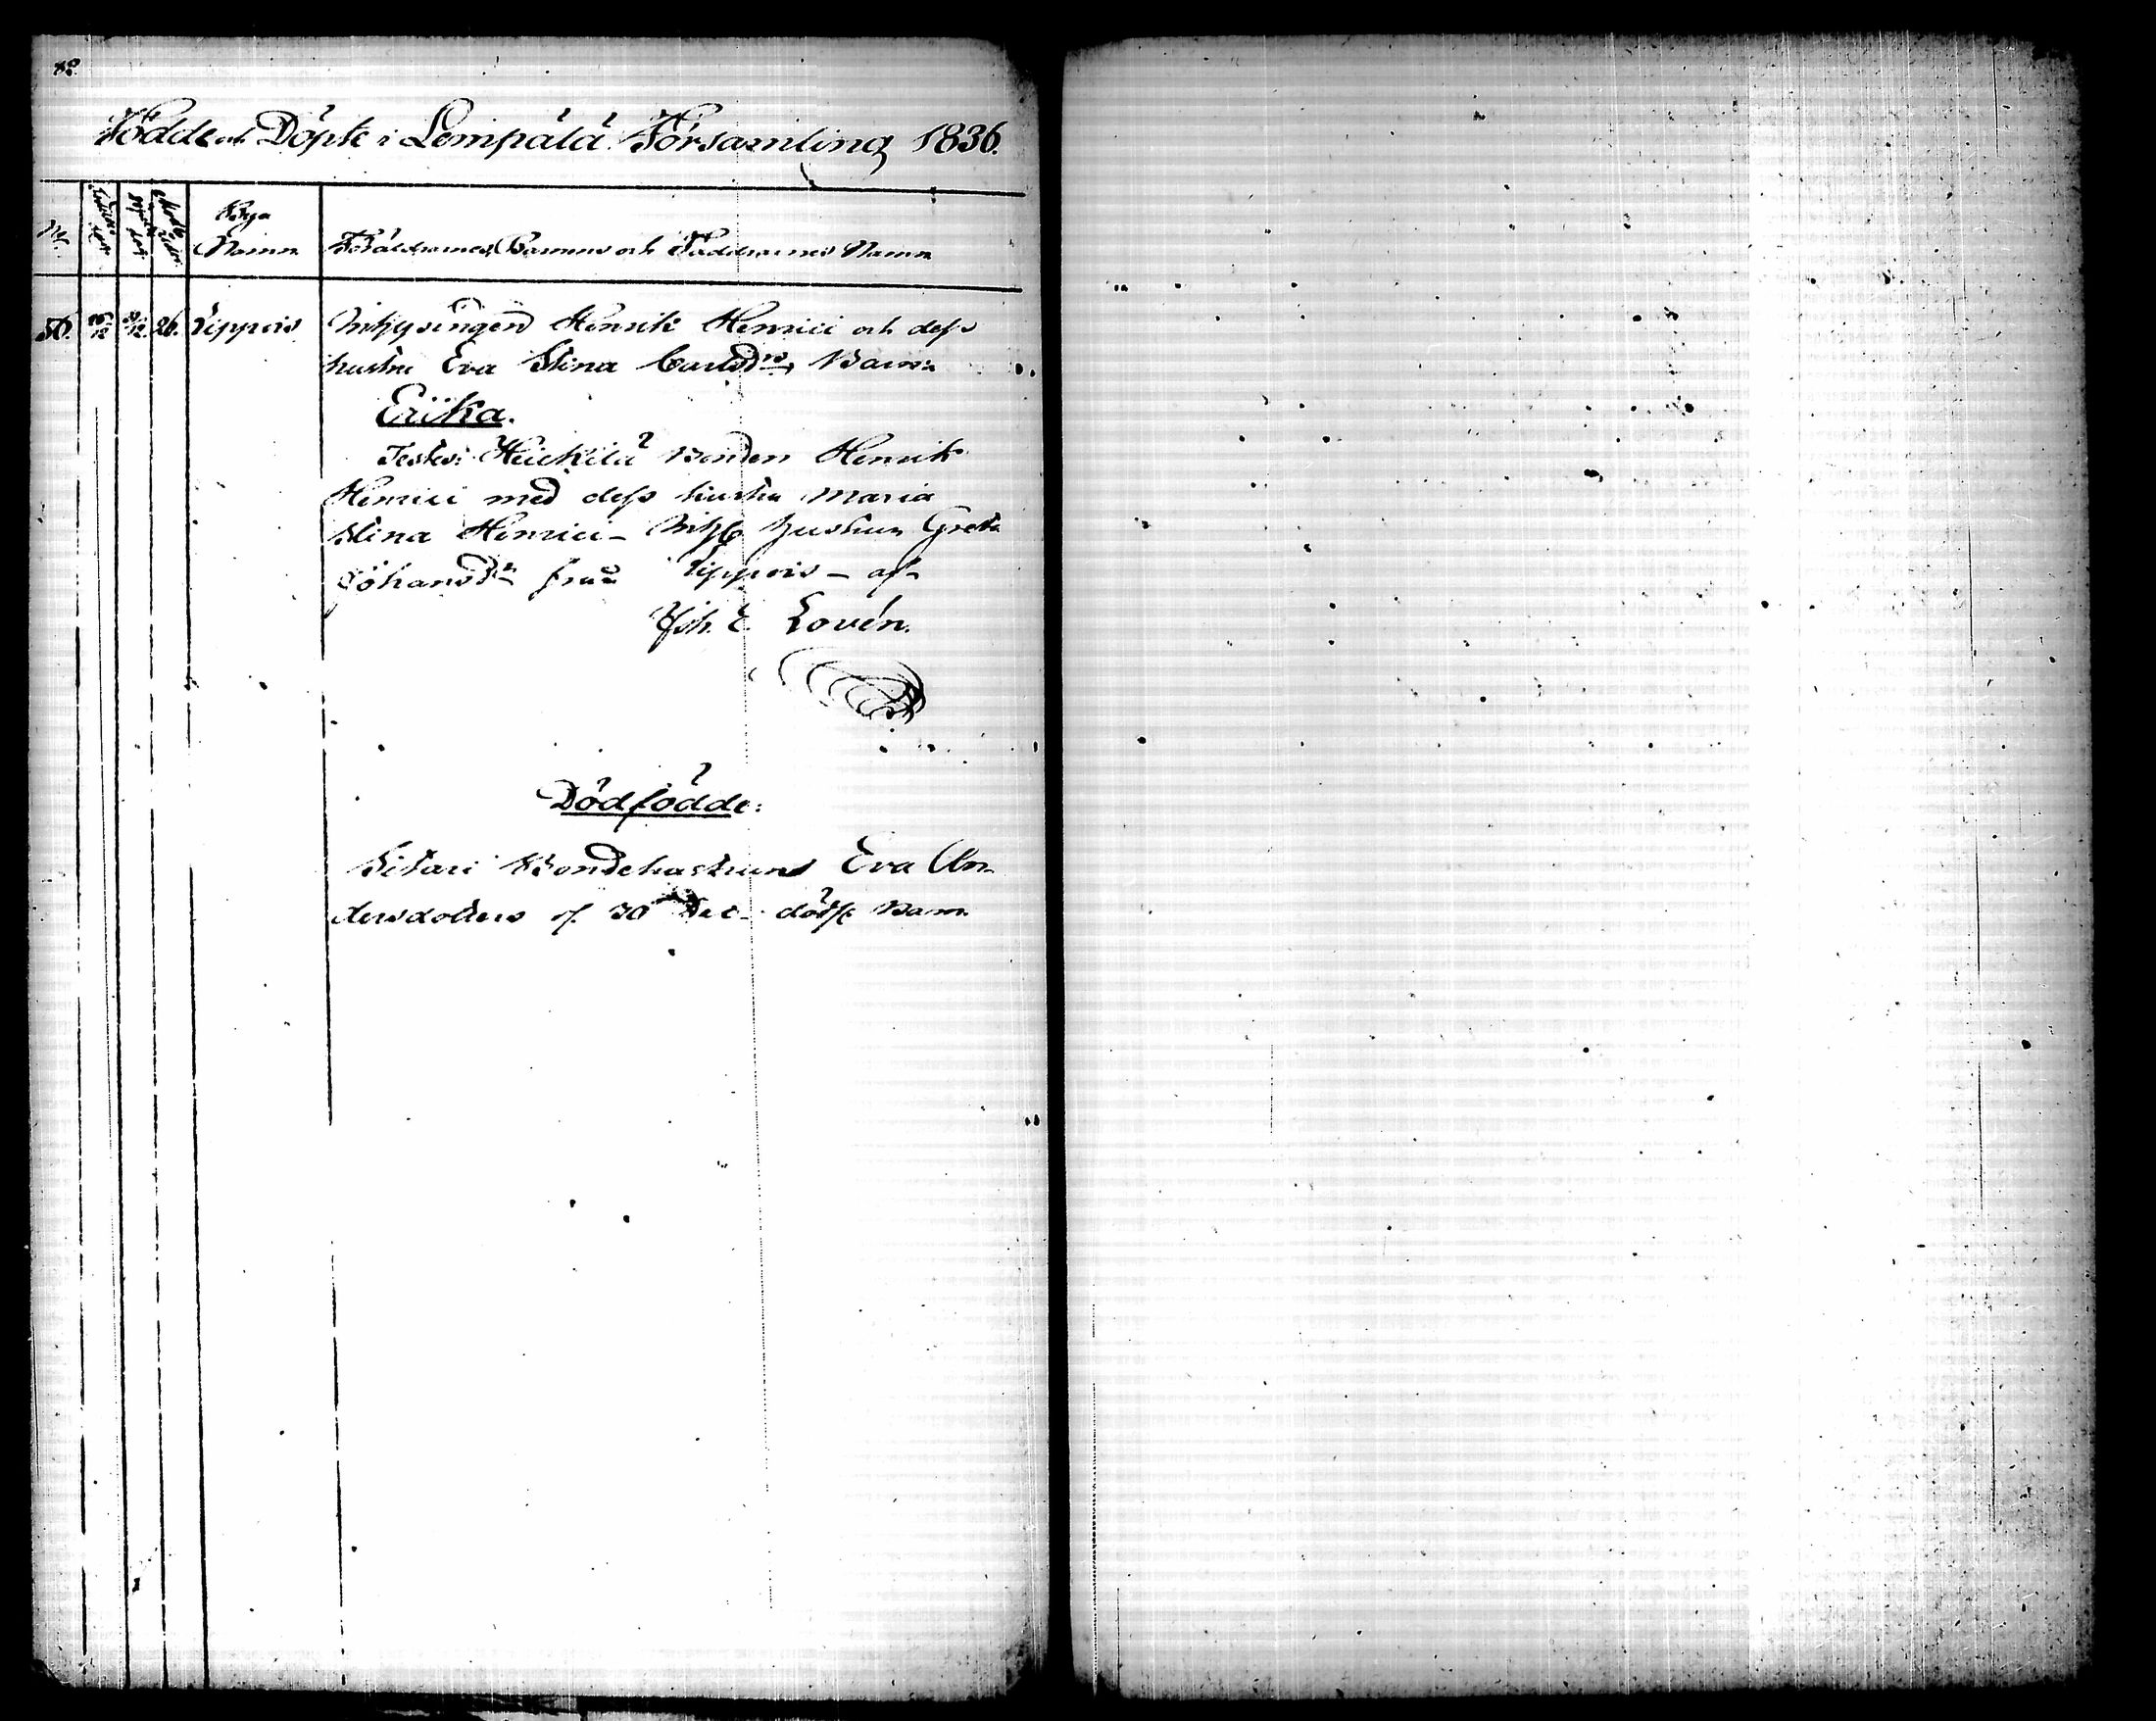 Födde och Döpte i Lempälä Församling 1836.
No. Födelse dag Döpelse dag Modrens ålder Bya Namn Föräldrarnes, Barnens och Faddrarnes Namn
50. 26/12 31/12 26. Lippois Inhysingen Henrik Henrici och dess
hustru Eva Stina Carlsdrs Barn
Erika.
Testes: Heickilä Bonden Henrik
Henrici med dess hustru Maria
Stina Henrici – Inhs hustrun Greta
Johansdr från Lippois – af
Joh. E. Lovén.
Dödfödde:
Sitari Bondehustruns Eva An-
dersdotters d. 30 Dec. dödf. Barn